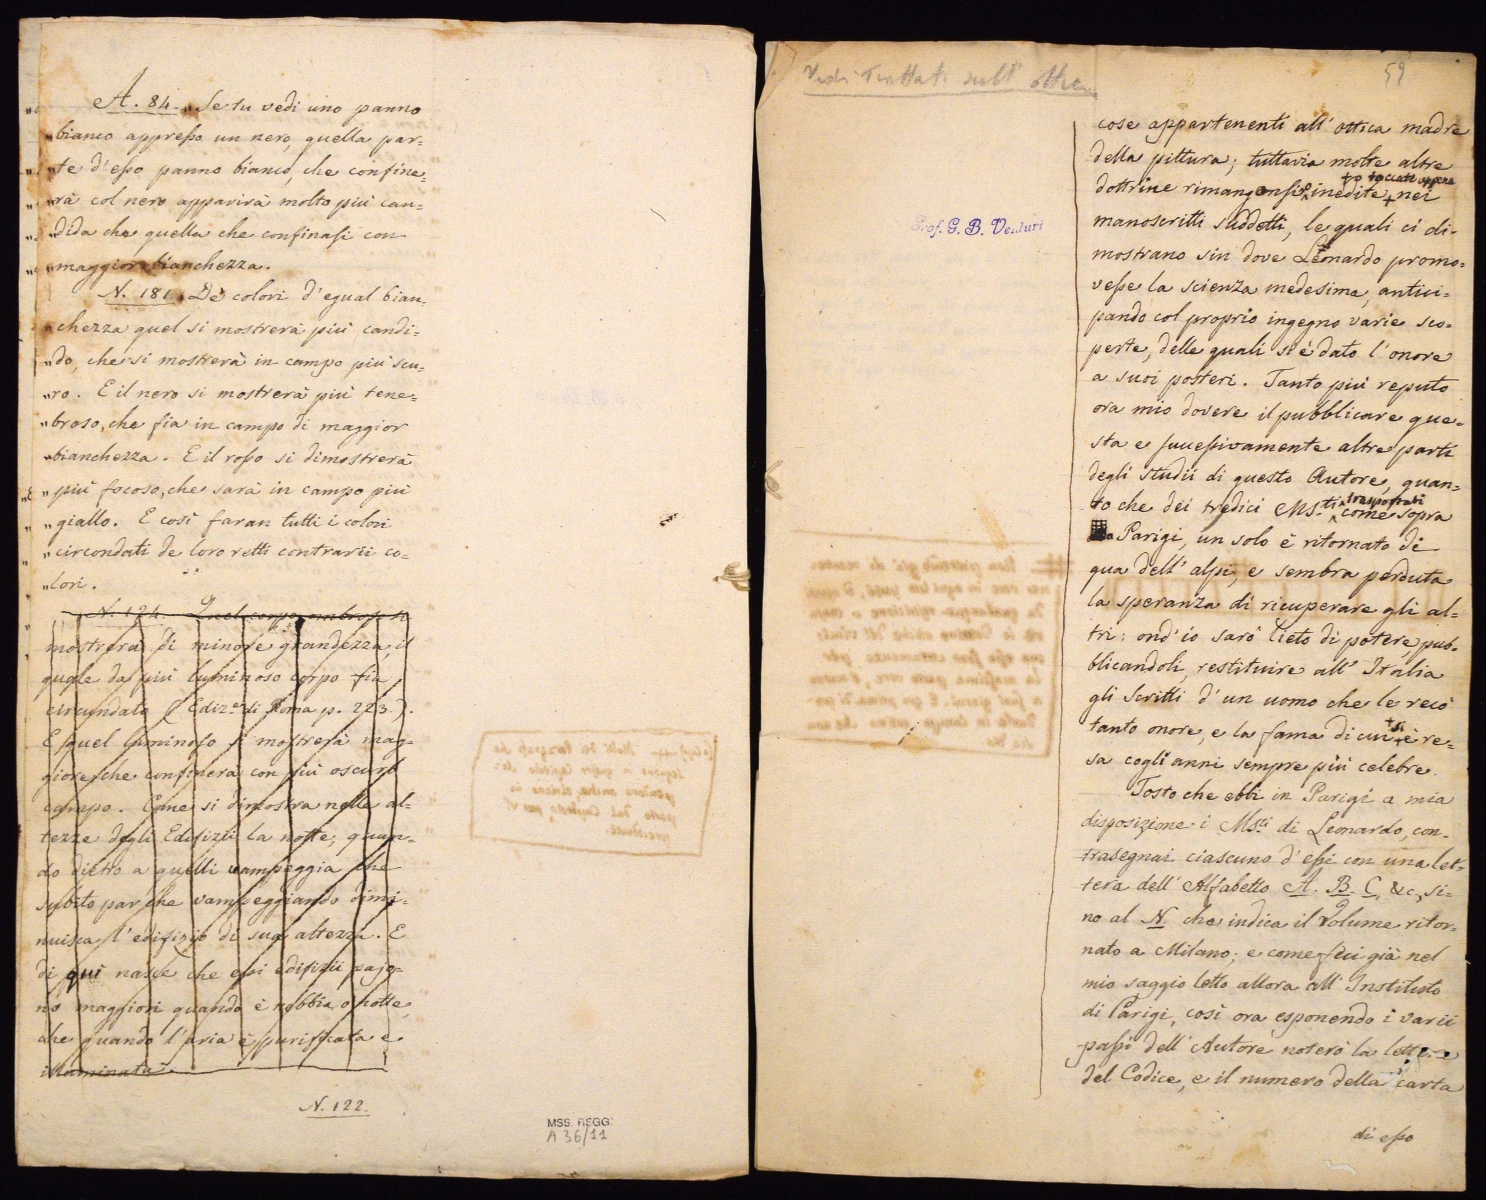 A. 84. „ Se tu vedi uno panno
„bianco appresso un nero, quella par=
„te d'esso panno bianco, che confine=
„rà col nero apparirà molto più can=
„dida che quella che confinasi con
„maggior bianchezza.
N. 181. De colori d'egual bian=
„chezza quel si mostrerà più candi=
„do, che si mostrerà in campo più scu=
„ro. E il nero si mostrerà più tene=
„broso, che fia in campo di maggior
„bianchezza. E il rosso si dimostrerà
„più focoso, che sarà in campo più
„giallo. E così faran tutti i colori
„circondati de loro retti contrarii co=
„lori.
N. 124. Quel corpo ombroso si
mostrerà di minore grandezza, il
quale da più luminoso corpo fia
circundato (Ediz.e di Roma p. 223.).
E quel luminoso si mostrerà mag=
giore, che confinerà con più oscuro
campo. Come si dimostra nelle al=
tezze degli Edifizii la notte, quan=
do dietro a quelli vampeggia che
subito par che vampeggiando dimi=
nuisca l'edifizio di sua altezza. E
di qui nasce che essi edifizii pajo=
no maggiori quando è nebbia o notte,
che quando l'aria è purificata e
illuminata.
N. 122.
MSS. REGG:
A 36/11
Vedi Trattati sull' ottica
59
Prof. G. B. Venturi
cose appartenenti all' ottica madre
della pittura; tuttavia molte altre
o toccate appena
dottrine rimangonsi inedite nei
manoscritti suddetti, le quali ci di=
mostrano sin dove Leonardo promo=
vesse la scienza medesima, antici=
pando col proprio ingegno varie sco=
perte, delle quali si è dato l'onore
a suoi posteri. Tanto più reputo
ora mio dovere il pubblicare que=
sta e successivamente altre parti
degli studii di questo Autore, quan=
trasportati
to che dei tredici Ms.ti come sopra
a Parigi, un solo è ritornato di
qua dell' alpi, e sembra perduta
la speranza di ricuperare gli al=
tri: ond' io sarò lieto di potere, pub=
blicandoli, restituire all' Italia
gli scritti d' un uomo che le recò
si
tanto onore, e la fama di cui è re=
sa cogli anni sempre più celebre.
Tosto che ebbi in Parigi a mia
disposizione i Ms.ti di Leonardo, con=
trasegnai ciascuno d'essi con una let=
tera dell' Alfabetto A. B. C, &c, si=
no al N. che indica il Volume ritor=
nato a Milano; e come feci già nel
mio saggio letto allora all' Instituto
di Parigi, così ora esponendo i varii
passi dell' Autore noterò la lettera
del Codice, e il numero della carta
di esso